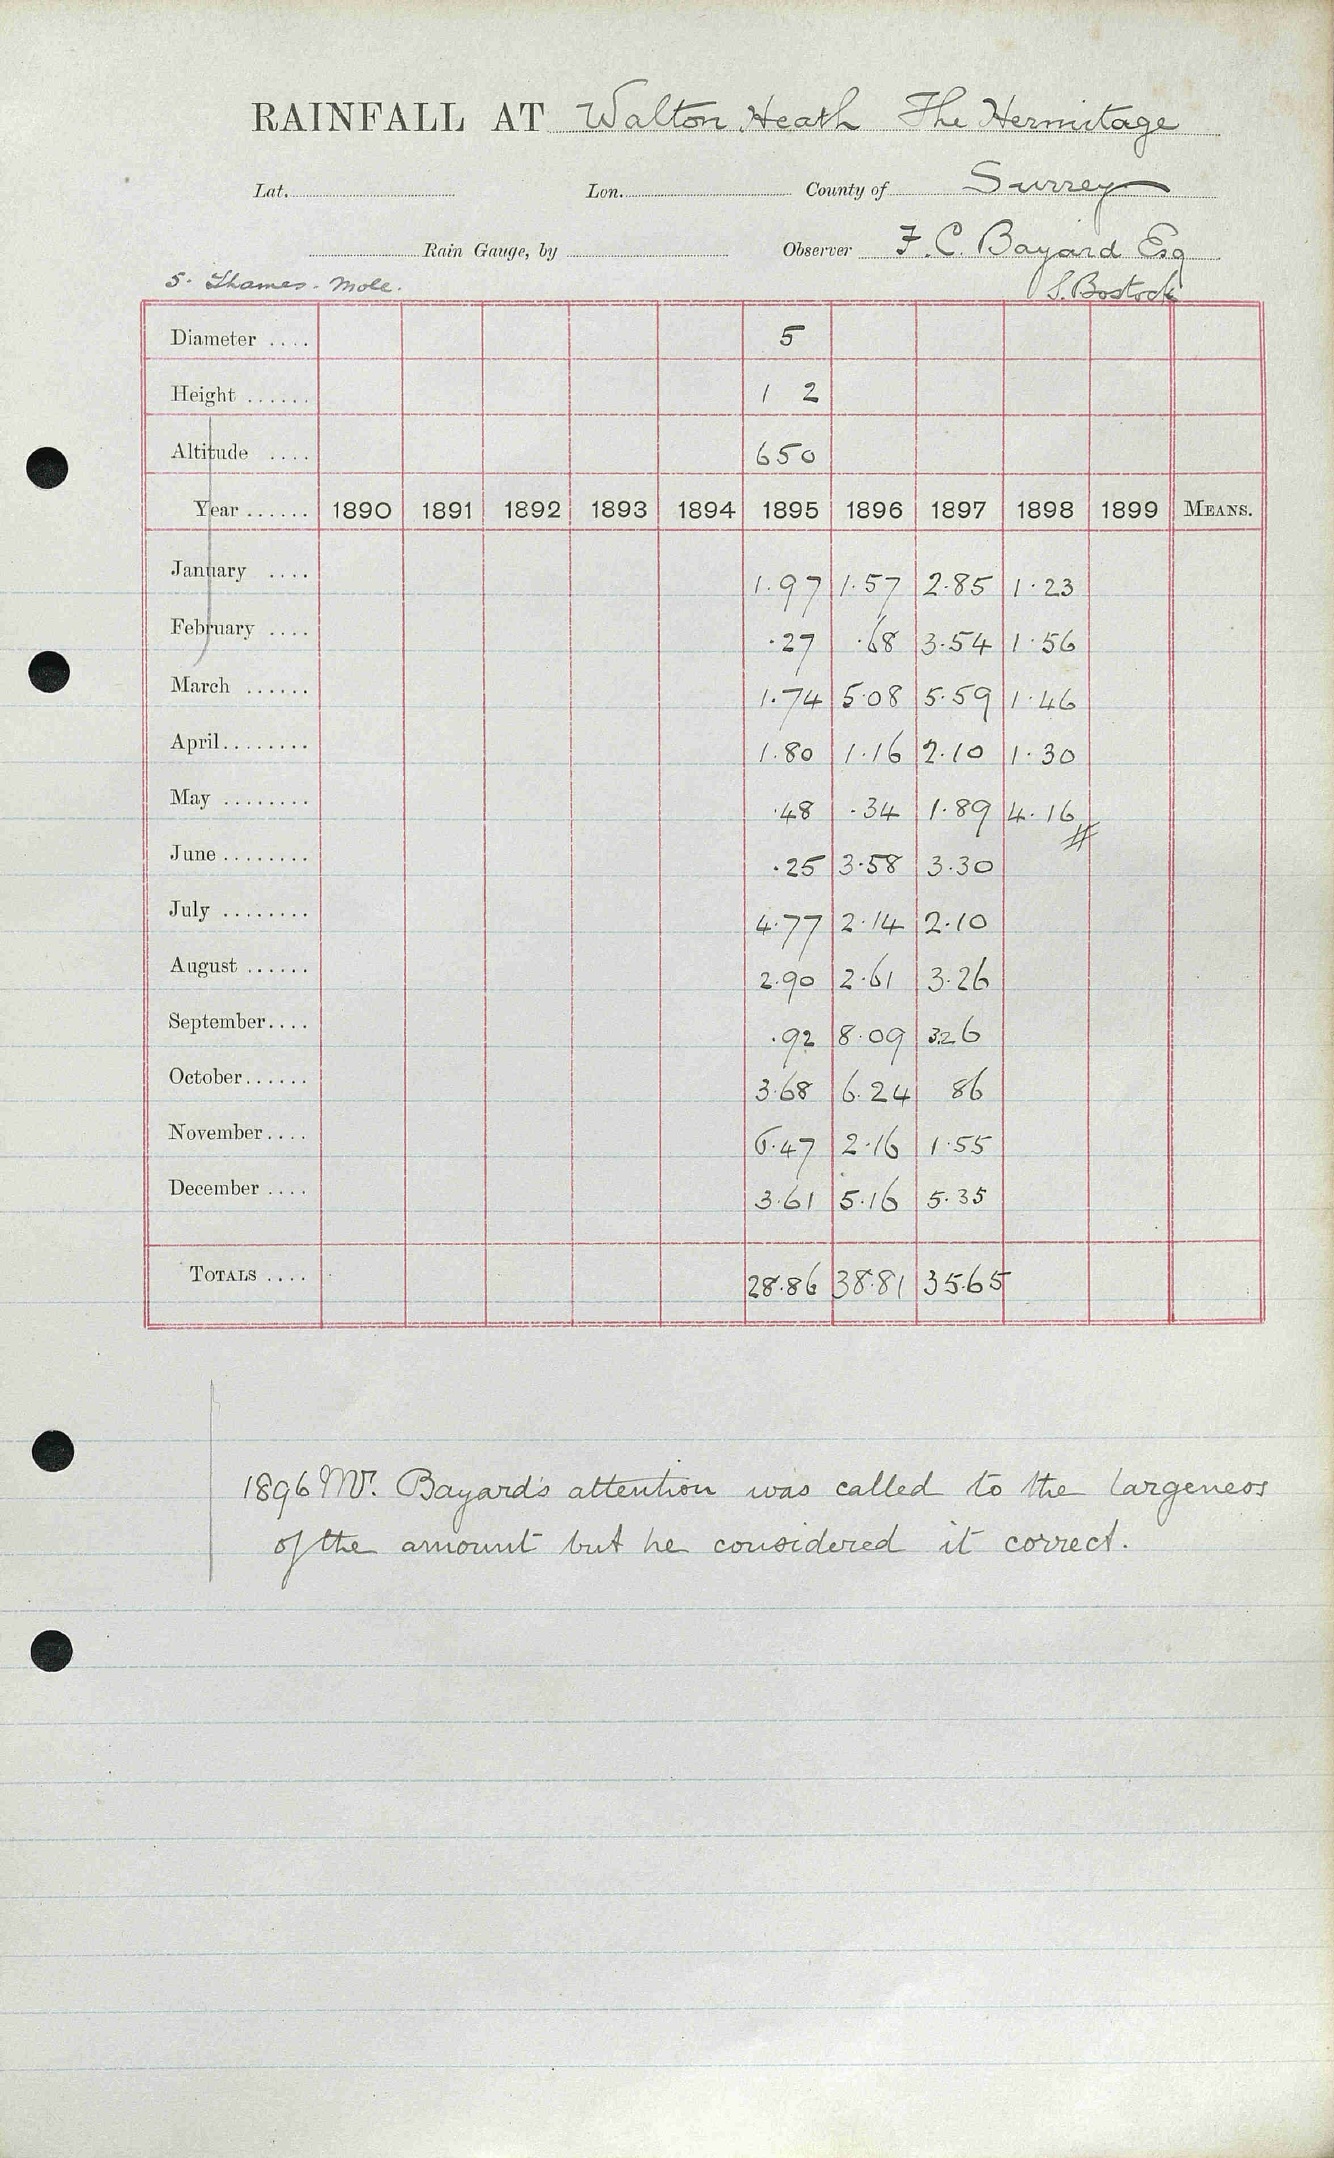 RAINFALL AT Walton Heath The Hermitage
Lat. Lon. County of Surrey
Rain Gauge, by Observer F. C. Bayard Esq
5. Thames. Mole. S. Bostock
Diameter .... 5
Height ...... 1 2
Altitude .... 650
Year ...... 1890 1891 1892 1893 1894 1895 1896 1897 1898 1899 MEANS.
January .... 1.97 1.57 2.85 1.23
February .... .27 .68 3.54 1.56
March ...... 1.74 5.08 5.59 1.46
April........ 1.80 1.16 2.10 1.30
May ........ .48 .34 1.89 4.16 #
June ........ .25 3.58 3.30
July ........ 4.77 2.14 2.10
August ...... 2.90 2.61 3.26
September.... .92 8.09 3.26
October...... 3.68 6.24 86
November.... 6.47 2.16 1.55
December .... 3.61 5.16 5.35
TOTALS .... 28.86 38.81 35.65
1896 Mr. Bayard's attention was called to the largeness
of the amount but he considered it correct.